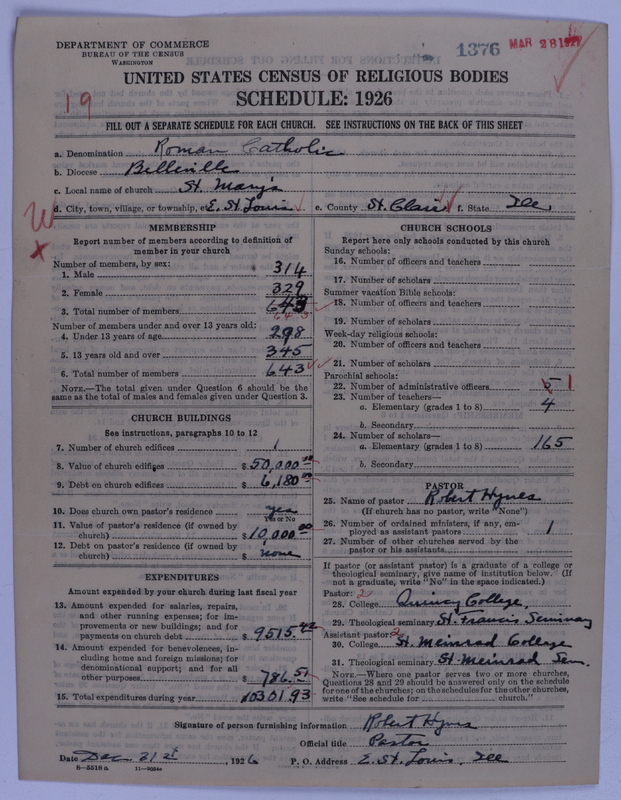 DEPARTMENT OF COMMERCE
BUREAU OF THE CENSUS
WASHINGTON
1376 MAR 28 1927
UNITED STATES CENSUS OF RELIGIOUS BODIES
SCHEDULE: 1926
19
FILL OUT A SEPARATE SCHEDULE FOR EACH CHURCH. SEE INSTRUCTIONS ON THE BACK OF THIS SHEET
a. Denomination Roman Catholic
b. Diocese Belleville
c. Local name of church St. Mary's
d. City, town, village, or township, etc. E. St. Louis e. County St. Clair f. State Ill.
MEMBERSHIP
Report number of members according to definition of
member in your church
Number of members, by sex:
1. Male 314
2. Female 329
3. Total number of members 643
643
Number of members under and over 13 years old:
4. Under 13 years of age 298
5. 13 years old and over 345
6. Total number of members 643
NOTE.—The total given under Question 6 should be
same as the total of males and females given under Question 3.
CHURCH BUILDINGS
See instructions, paragraphs 10 to 12
7. Number of church edifices 1
8. Value of church edifices $50,000.00
9. Debt on church edifices $6,180.00
10. Does church own pastor's residence yes
Yes or No
11. Value of pastor's residence (if owned by
church) $10,000.00
12. Debt on pastor's residence (if owned by
church) $none
EXPENDITURES
Amount expended by your church during last fiscal year
13. Amount expended for salaries, repairs,
and other running expenses; for im-
provements or new buildings; and for
payments on church debt $9515.42
14. Amount expended for benevolences, in-
cluding home and foreign missions; for
denominational support; and for all
other purposes $786.51
15. Total expenditures during year 10301.93
CHURCH SCHOOLS
Report here only schools conducted by this church
Sunday schools:
16. Number of officers and teachers
17. Number of scholars
Summer vacation Bible schools:
18. Number of officers and teachers
19. Number of scholars
Week-day religious schools:
20. Number of officers and teachers
21. Number of scholars
Parochial schools:
22. Number of administrative officers 5 1
23. Number of teachers—
a. Elementary (grades 1 to 8) 4
b. Secondary
24. Number of scholars—
a. Elementary (grades 1 to 8) 165
b. Secondary
PASTOR
25. Name of pastor Robert Hynes
(If church has no pastor, write "None")
26. Number of ordained ministers, if any, em-
ployed as assistant pastors 1
27. Number of other churches served by the
pastor or his assistants
If pastor (or assistant pastor) is a graduate of a college or
theological seminary, give name of institution below. (If
not a graduate, write "No" in the space indicated.)
Pastor: 2
28. College Quincy College,
29. Theological seminary St. Francis Seminary
Assistant pastor: 2
30. College St. Meinrad College
31. Theological seminary St. Meinrad Sem.
NOTE.—Where one pastor serves two or more churches,
Questions 28 and 29 should be answered only on the schedule
for one of the churches; on the schedules for the other churches,
write "See schedule for church."
Signature of person furnishing information Robert Hynes
Official title Pastor
Date Dec 21st, 1926 P. O. Address E. St. Louis, Ill
8—5518a 11—9054